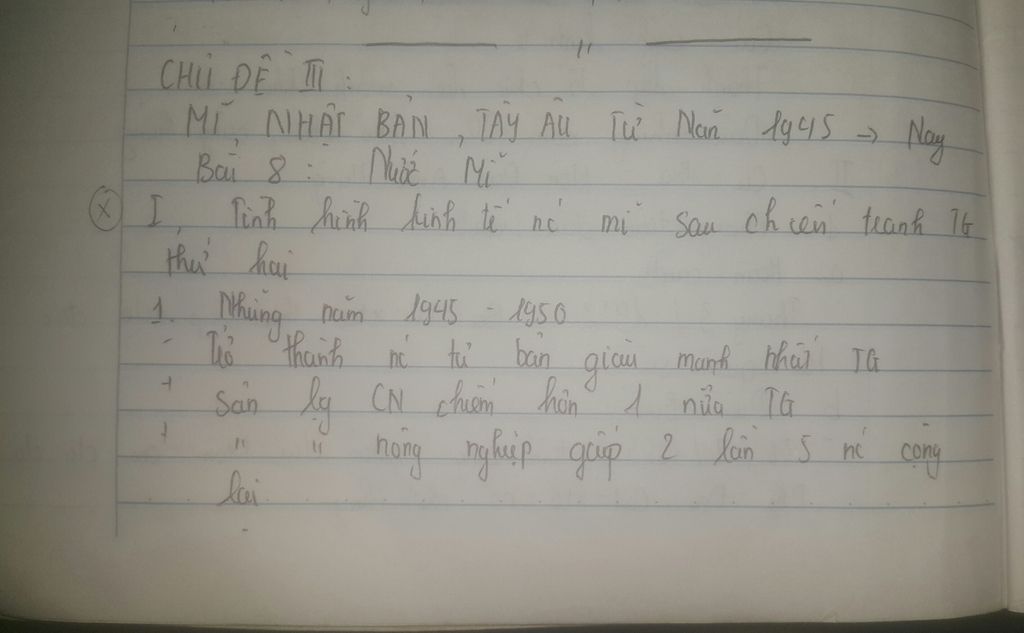 "
CHỦ ĐỀ III :
MĨ, NHẬT BẢN, TÂY ÂU TỪ Năm 1945 → Nay
Bài 8 : Nước Mĩ
(X) I, Tình hình kinh tế nc mĩ sau chiến tranh TG
thứ hai
1. Những năm 1945 - 1950
- Trở thành nc tư bản giàu mạnh nhất TG
+ Sản lg CN chiếm hơn 1 nửa TG
+ " " nông nghiệp gấp 2 lần 5 nc cộng
lại
-